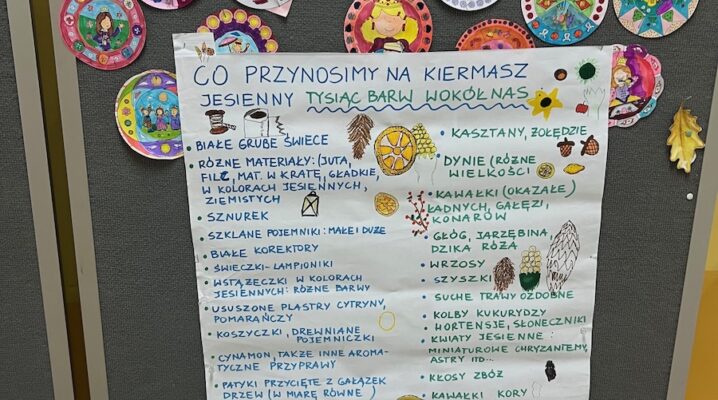 CO PRZYNOSIMY NA KIERMASZ
JESIENNY TYSIĄC BARW WOKÓŁ NAS
• BIAŁE GRUBE ŚWIECE
• RÓŻNE MATERIAŁY: (JUTA,
FILC, MAT. W KRATĘ, GŁADKIE,
W KOLORACH JESIENNYCH,
ZIEMISTYCH
• SZNUREK
• SZKLANE POJEMNIKI: MAŁE I DUŻE
• BIAŁE KOREKTORY
• ŚWIECZKI-LAMPIONIKI
• WSTĄŻECZKI W KOLORACH
JESIENNYCH: RÓŻNE BARWY
• USUSZONE PLASTRY CYTRYNY,
POMARAŃCZY
• KOSZYCZKI, DREWNIANE
POJEMNICZKI
• CYNAMON, TAKŻE INNE AROMA-
TYCZNE PRZYPRAWY
• PATYKI PRZYCIĘTE Z GAŁĄZEK
DRZEW (W MIARĘ RÓWNE)
• KASZTANY, ŻOŁĘDZIE
• DYNIE (RÓŻNE
WIELKOŚCI
• KAWAŁKI (OKAZAŁE)
ŁADNYCH, GAŁĘZI,
KONARÓW
• GŁÓG, JARZĘBINA,
DZIKA RÓŻA
• WRZOSY
• SZYSZKI
• SUCHE TRAWY OZDOBNE
• KOLBY KUKURYDZY
• HORTENSJE, SŁONECZNIKI
• KWIATY JESIENNE:
MINIATUROWE CHRYZANTEMY,
ASTRY ITD...
• KŁOSY ZBÓŻ
• KAWAŁKI KORY